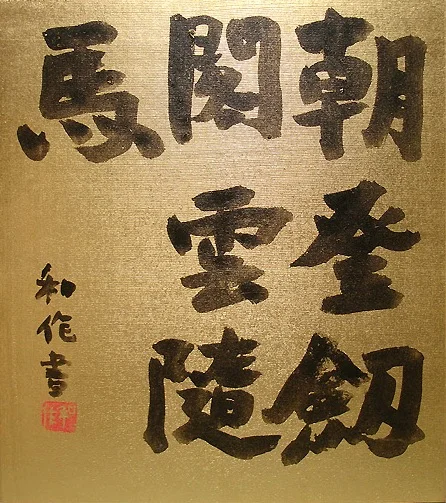 朝登劔
閣雲隨
馬
和作書